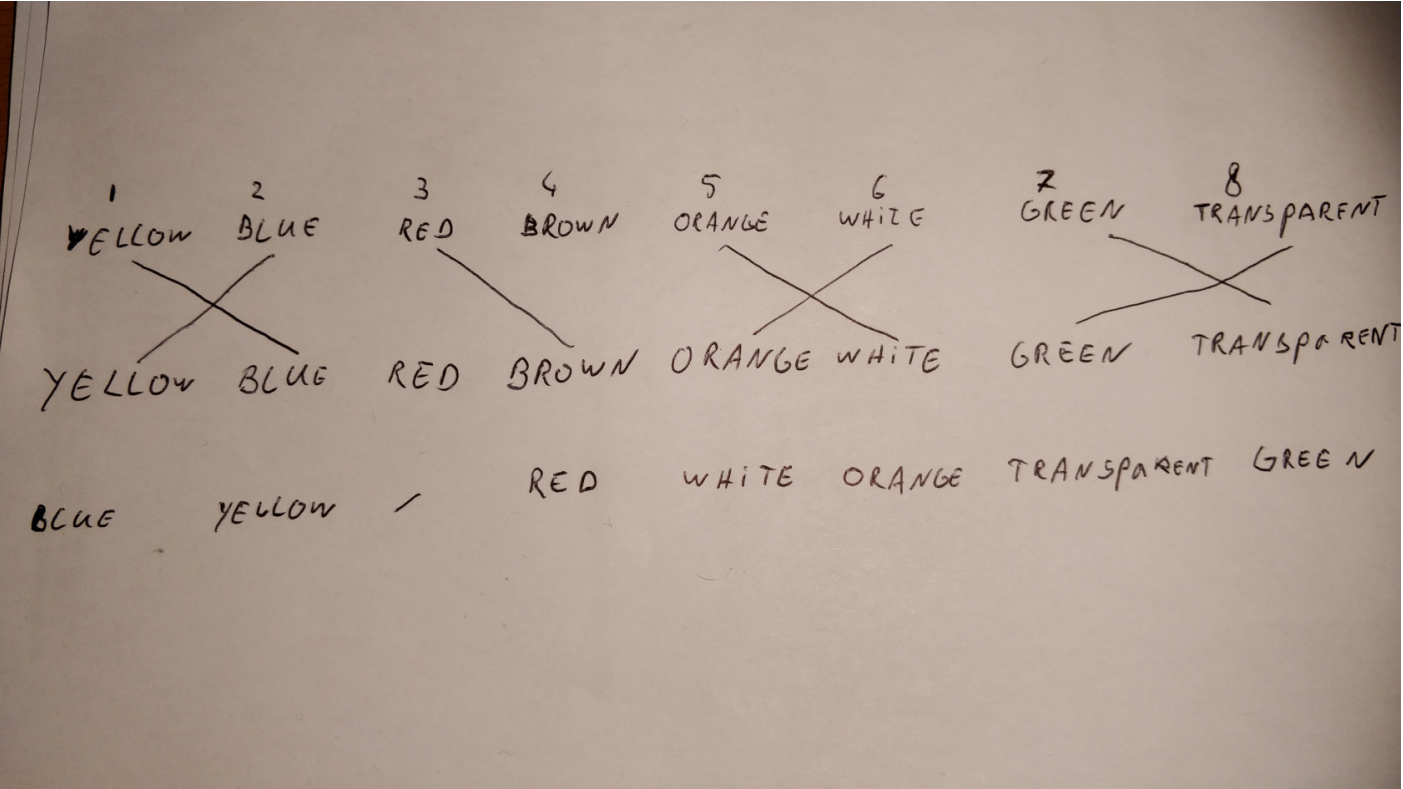 1 2 3 4 5 6 7 8
YELLOW BLUE RED BROWN ORANGE WHITE GREEN TRANSPARENT
YELLOW BLUE RED BROWN ORANGE WHITE GREEN TRANSPARENT
BLUE YELLOW / RED WHITE ORANGE TRANSPARENT GREEN